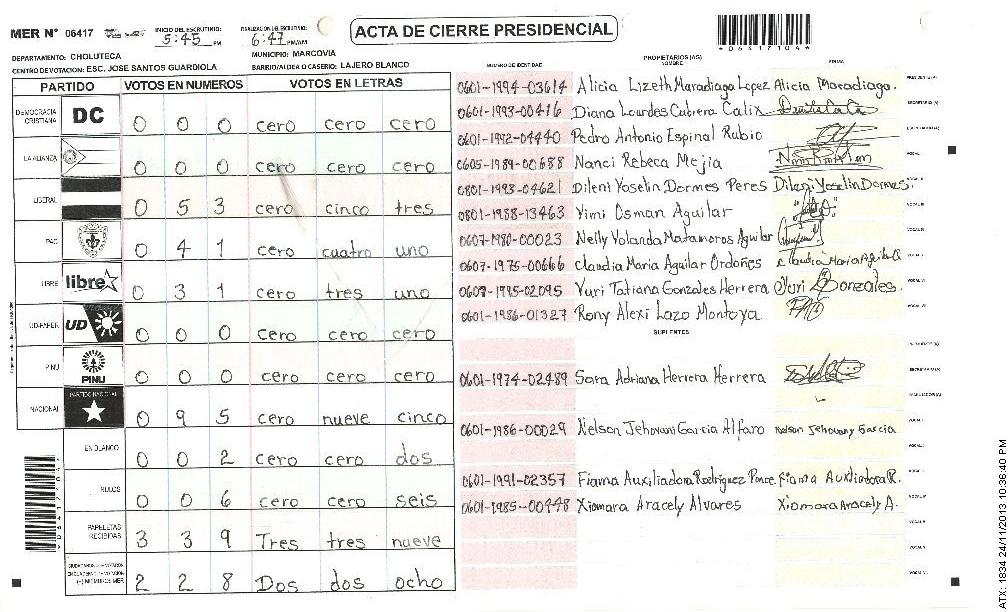 MER N° 06417
INICIO DEL ESCRUTINIO:
5:45 PM
FINALIZACION DEL ESCRUTINIO:
6:47 PM/AM
ACTA DE CIERRE PRESIDENCIAL
*06417104*
DEPARTAMENTO: CHOLUTECA
MUNICIPIO: MARCOVIA
CENTRO DE VOTACION: ESC. JOSE SANTOS GUARDIOLA
BARRIO/ALDEA O CASERIO: LAJERO BLANCO
PARTIDO VOTOS EN NUMEROS VOTOS EN LETRAS
DEMOCRACIA CRISTIANA DC 0 0 0 cero cero cero
LA ALIANZA 0 0 0 cero cero cero
LIBERAL 0 5 3 cero cinco tres
PAC 0 4 1 cero cuatro uno
LIBRE libre 0 3 1 cero tres uno
UD-FAPER UD 0 0 0 cero cero cero
PINU PINU 0 0 0 cero cero cero
NACIONAL PARTIDO NACIONAL 0 9 5 cero nueve cinco
EN BLANCO 0 0 2 cero cero dos
NULOS 0 0 6 cero cero seis
PAPELETAS RECIBIDAS 3 3 9 Tres tres nueve
2 2 8 Dos dos ocho
NUMERO DE IDENTIDAD
PROPIETARIOS (AS)
NOMBRE
FIRMA
0601-1994-03614 Alicia Lizeth Maradiaga Lopez Alicia Maradiaga.
0601-1993-00416 Diana Lourdes Cabrera Calix
0601-1992-04440 Pedro Antonio Espinal Rubio
0605-1989-00688 Nanci Rebeca Mejia
0801-1993-04621 Dileni Yoselin Dormes Peres Dileni Yoselin Dormes.
0801-1988-13463 Yimi Osman Aguilar
0607-1980-00023 Nelly Yolanda Matamoros Aguilar
0607-1975-00666 Claudia Maria Aguilar Ordoñes Claudia Maria Aguila O
0608-1995-02095 Yuri Tatiana Gonzales Herrera Yuri Gonzales.
0601-1986-01327 Rony Alexi Lazo Montoya
SUPLENTES
0601-1974-02489 Sara Adriana Herrera Herrera
0601-1986-00029 Nelson Jehovani Garcia Alfaro Nelson Jehovany Garcia
0601-1991-02357 Fiama Auxiliadora Rodriguez Ponce. Fiama Auxiliadora R.
0601-1985-00448 Xiomara Aracely Alvares Xiomara Aracely A.
ATX: 1834 24/11/2013 10:36:40 PM